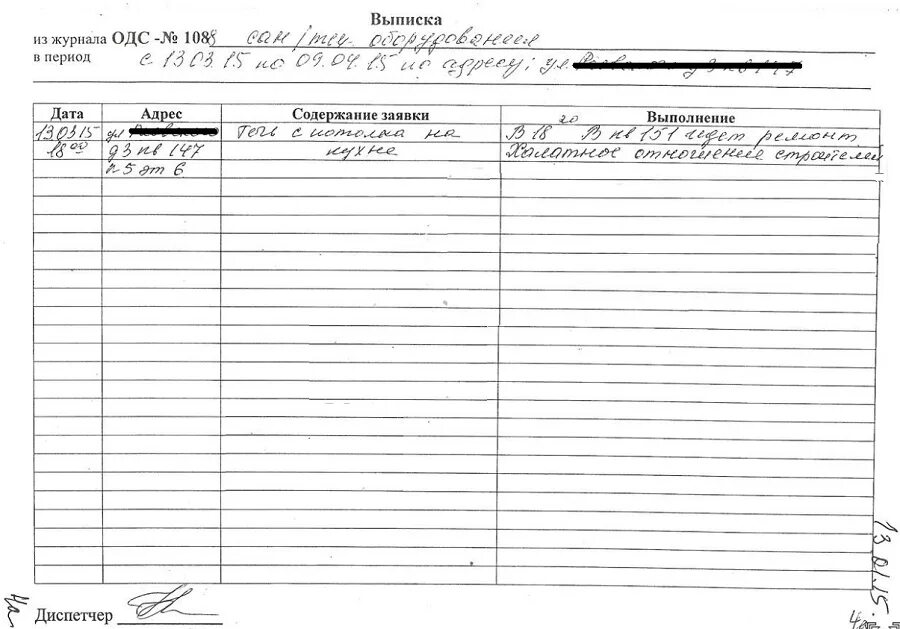 Выписка
из журнала ОДС -№ 1088 сан/тех. оборудованием
в период с 13.03.15 по 09.04.15 по адресу: ул д3 кв 147
Дата Адрес Содержание заявки Выполнение
13.03.15 ул Течь с потолка на В 18 20 В кв 151 идет ремонт
18 00 д3 кв 147 кухне Халатное отношение строителей
п5 эт 6
13.01.15
Диспетчер